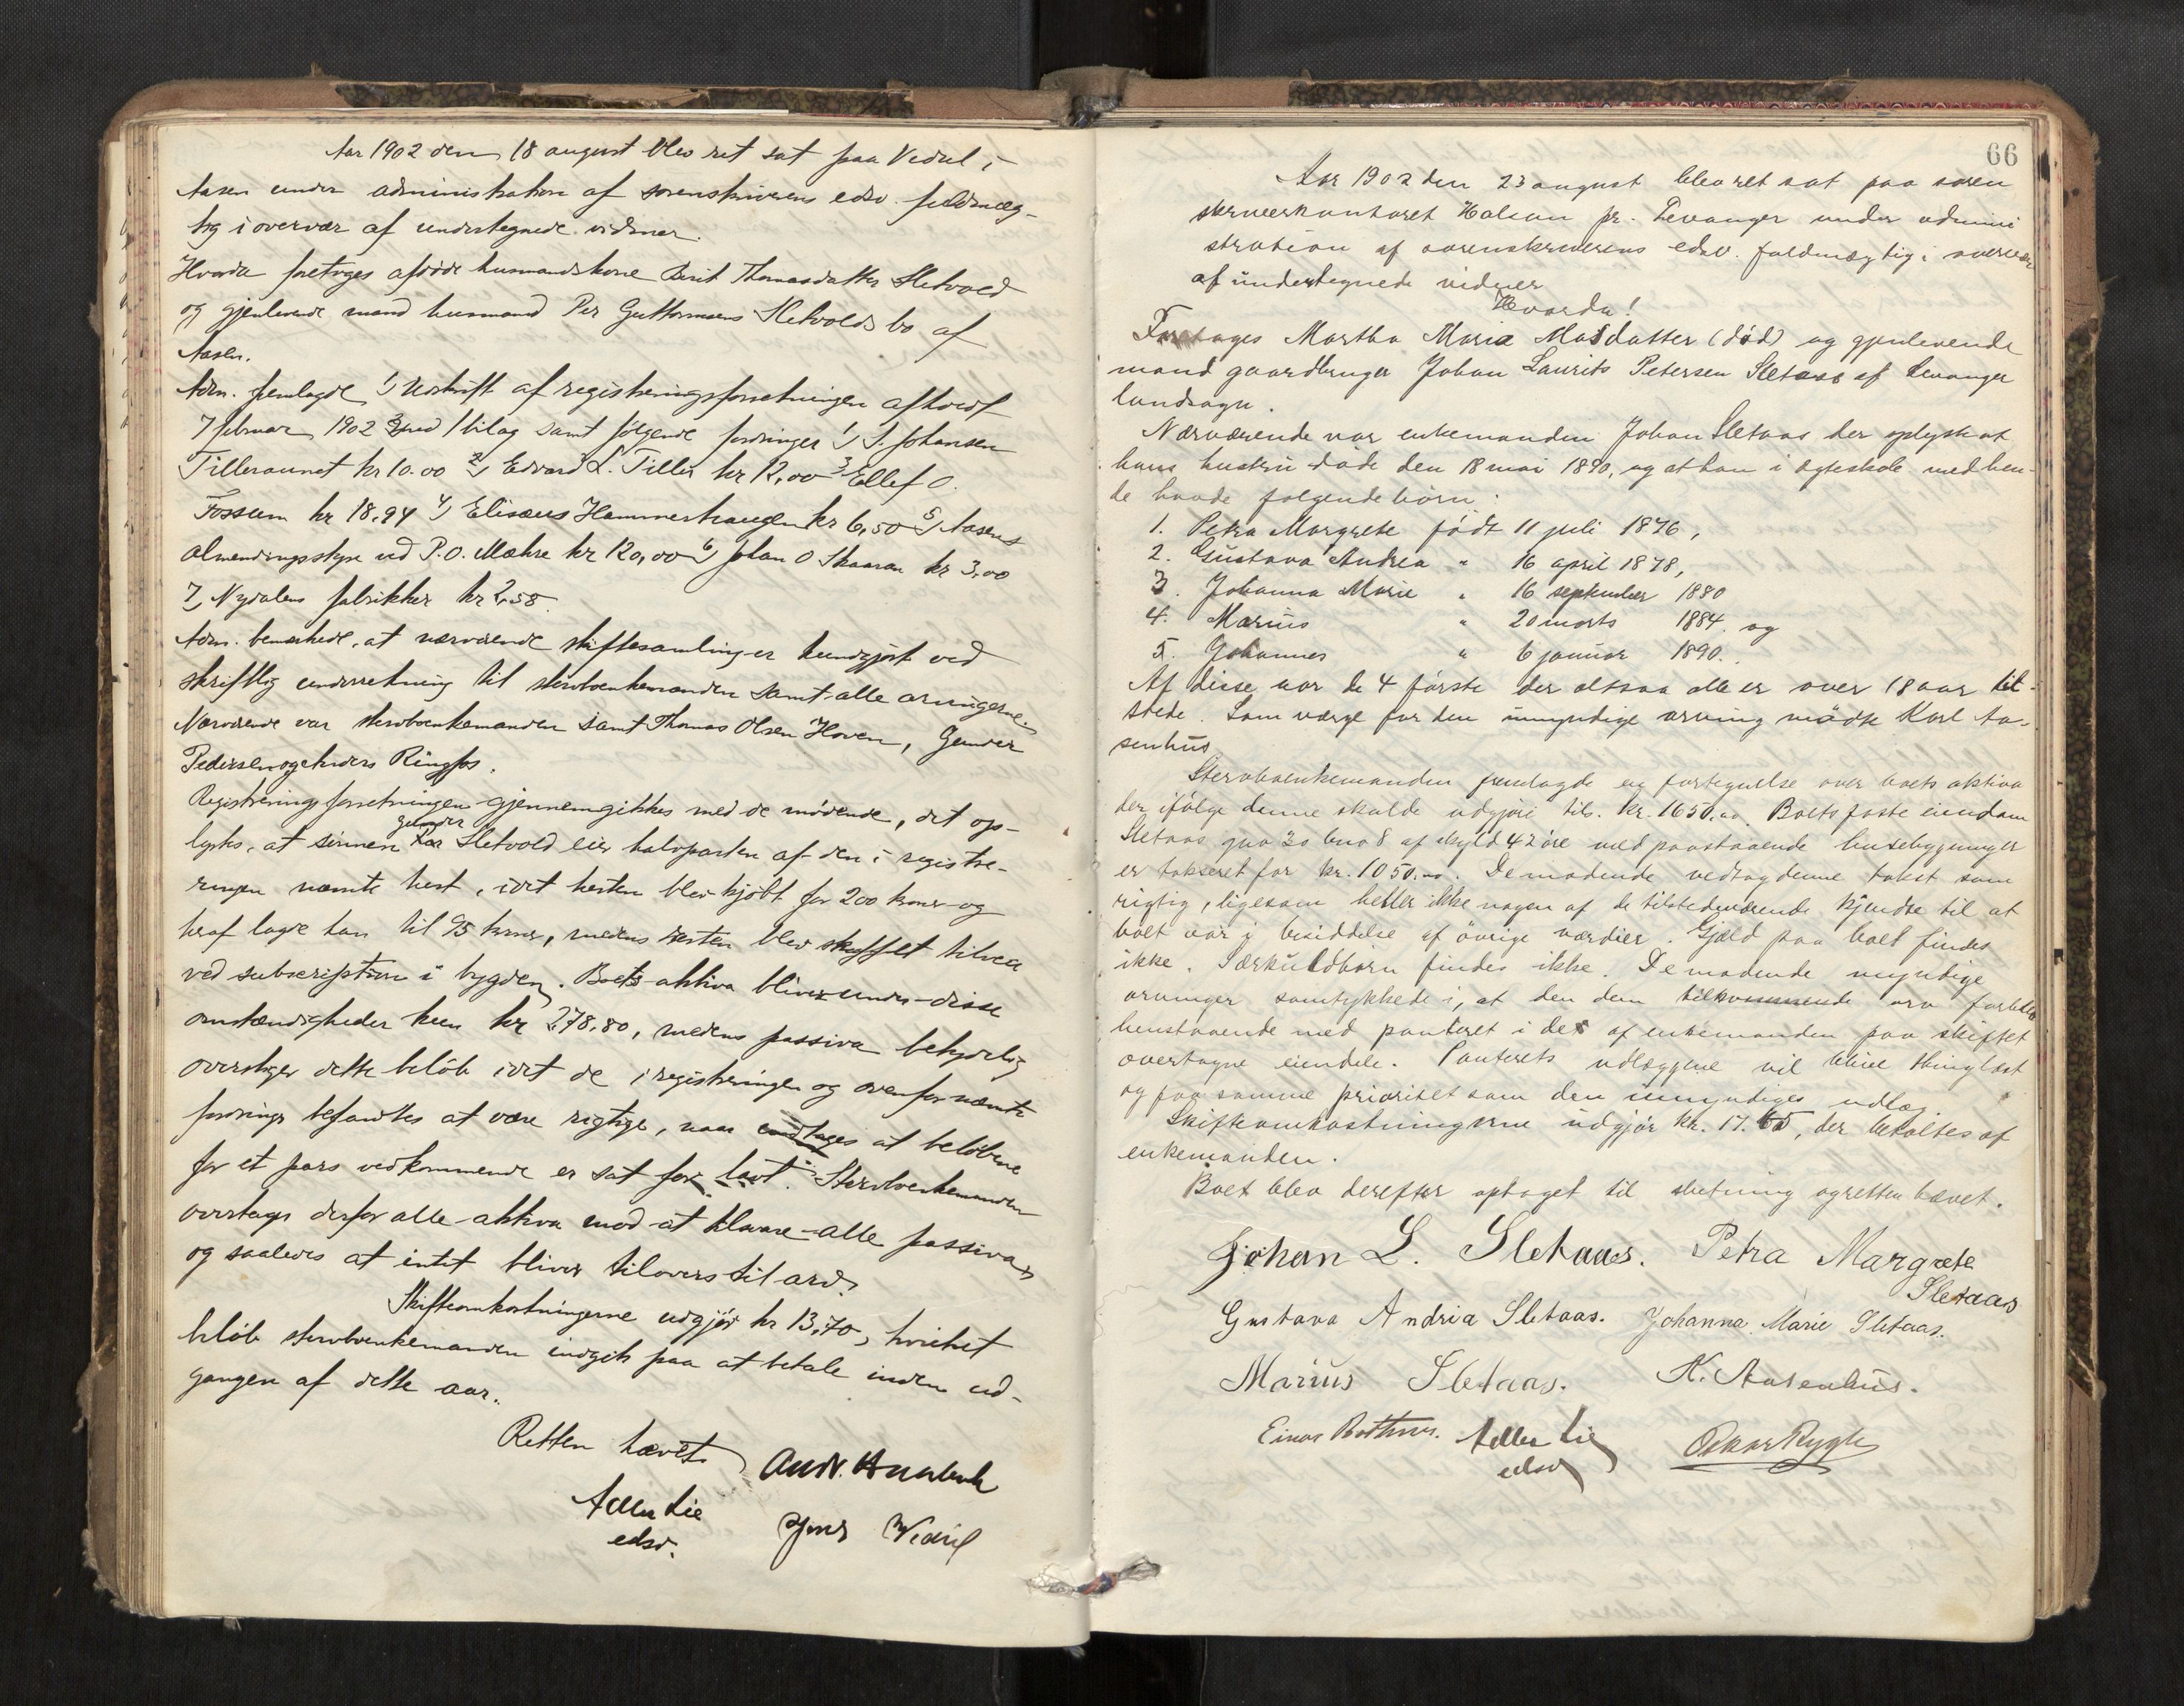 Aar 1902 den 18 august blev ret sat paa Vedul i
Aasen under administration af sorenskriverens edsv. fuldmæg-
tig i overvær af undertegnede vidner.
Hvorda foretoges afdøde husmandskone Berit Thomasdatter Sletvold
og gjenlevende mand husmand Per Guttormsens Sletvolds bo af
Aasen.
Adm. fremlagde 1) Udskrift af registreringsforretningen afholdt
7 februar 1902 med 1 bilag samt følgende fordringer 1) J. Johansen
Tilleraunet kr 10.00 2) Edvard L. Tiller kr 12,00 3) Ellef O.
Fossum kr 18,94 4) Elisæus Hammerhaugen kr 6,50 5) Aasens
almendingsstyre ved P. O. Mæhre kr 120,00 6) Johan O Skaaran kr 3,00
7) Nydalens fabrikker kr 2,58.
Adm. bemærkede, at nærværende skiftesamling er kundgjort ved
skriftlig underretning til stervboenkemanden samt alle arvingerne.
Nærværende var stervboenkemanden samt Thomas Olsen Hoven, Gunder
Pedersen og Anders Ringfos.
Registreringsforretningen gjennemgikkes med de mødende, det op-
gunder
lystes, at sønnen Per Sletvold eier halvparten af den i registre-
ringen nævnte hest, idet hesten blev kjøbt for 200 kroner og
heraf lagde han til 95 kroner, medens resten blev skaffet tilveie
ved subscription i bygden. Boets aktiva bliver under disse
omstændigheder kun kr 278,80, medens passiva betydelig
overstiger dette beløb idet de i registreringen og ovenfor nævnte
fordringer befandtes at være rigtige, naar undtages at beløbene
for et pars vedkommende er sat for lavt. Stervboenkemanden
overtager derfor alle aktiva mod at tilsvare alle passiva,
og saaledes at intet bliver tilovers til arv.
Skifteomkostningerne udgjør kr 13,70, hvilket
beløb stervboenkemanden indgik paa at betale inden ud-
gangen af dette aar.
Retten hævet
Adler Lie
edsv.
Jens Vedul
66
Aar 1902 den 23 august blev ret sat paa soren
skriverkontoret Halsan pr. Levanger under admini
stration af sorenskriverens edsv. fuldmægtig i overvær
af undertegnede vidner
Hvorda!
Foretages Martha Maria Matsdatter (død) og gjenlevende
mand gaardbruger Johan Laurits Petersen Sletaas af Levanger
landsogn.
Nærværende var enkemanden Johan Sletaas der oplyste at
hans hustru døde den 18 mai 1890, og at han i ægteskab med hen-
de havde følgende børn:
1. Petra Margrete født 11 juli 1876,
2. Gustava Andrea " 16 april 1878,
3. Johanna Marie " 16 september 1880
4. Marius " 20 marts 1884 og
5. Johannes " 6 januar 1890.
Af disse var de 4 første der altsaa alle er over 18 aar til-
stede. Som værge for den umyndige arving mødte Karl Aa-
senhus
Stervboenkemanden fremlagde en fortegnelse over boets aktiva
der ifølge denne skulde udgjøre tils. kr. 1650.00. Boets faste eiendom
Sletaas gno 30 bno 8 af skyld 42 øre med paastaaende husebygninger
er takseret for kr. 1050.00. De mødende vedtog denne takst som
rigtig, ligesom heller ikke nogen af de tilstedeværende kjendte til at
boet var i besiddelse af øvrige værdier. Gjæld paa boet findes
ikke. Særkuldbørn findes ikke. De mødende myndige
arvinger samtykkede i, at den dem tilkommende arv forblev
henstaaende med panteret i de af enkemanden paa skiftet
overtagne eiendele. Panterets udlæggene vil blive thinglæst
og faa samme prioritet som den umyndiges udlæg.
Skifteomkostningerne udgjør kr. 17.65, der betaltes af
enkemanden.
Boet blev derefter optaget til slutning og retten hævet.
Johan L. Sletaas. Petra Margrete
Sletaas
Gustava Andria Sletaas. Johanna Marie Sletaas.
Marius Sletaas. K. Aasenhus.
Einar Adler Lie Oskar Rygh
edsv